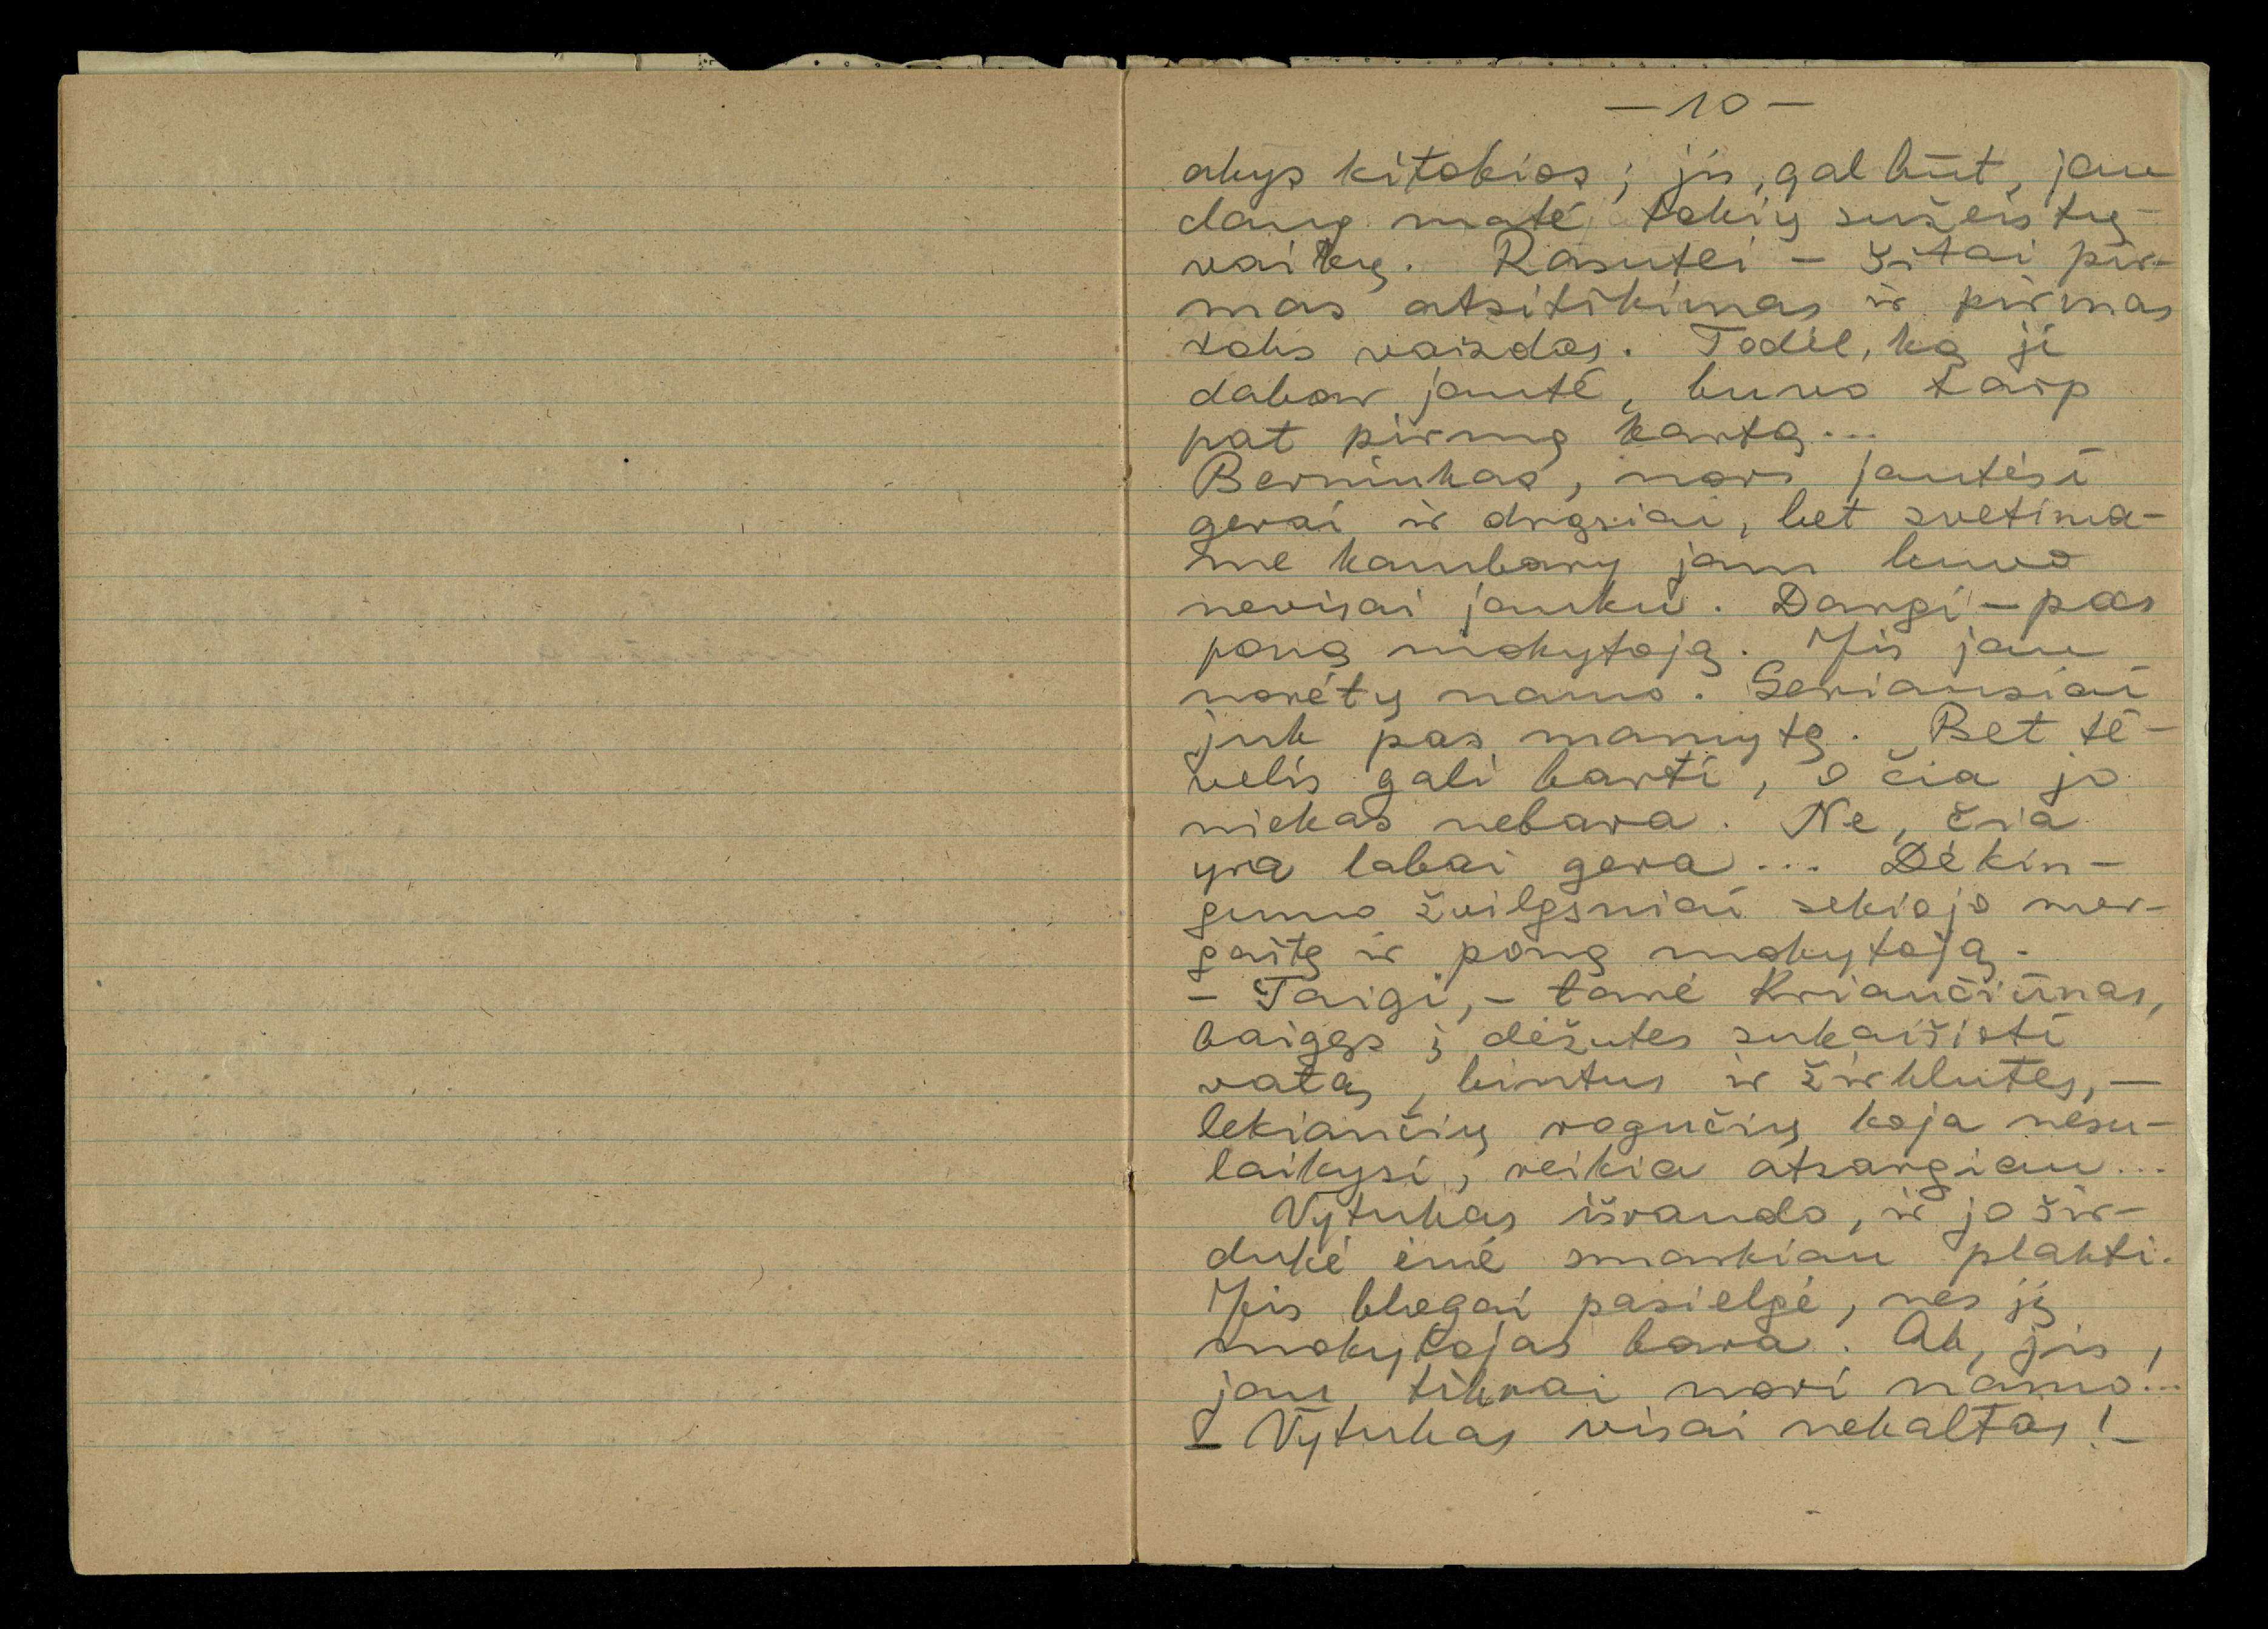 — 10 —
akys kitokios; jis, gal būt, jau
daug matė tokių sužeistų
vaikų. Rasutei – šitai pir-
mas atsitikimas ir pirmas
toks vaizdas. Todėl, ką ji
dabar jautė, buvo taip
pat pirmą kartą...
Berniukas, nors jautėsi
gerai ir drąsiai, bet svetima-
me kambary jam buvo
nevisai jauku. Dargi – pas
poną mokytoją. Jis jau
norėtų namo. Geriausiai
juk pas mamytę. Bet tė-
velis gali barti, o čia jo
niekas nebara. Ne, čia
yra labai gera... Dėkin-
gumo žvilgsniai sekiojo mer-
gaitę ir poną mokytoją.
– Taigi, – tarė Kriaučiūnas,
baigęs į dėžutes sukaišioti
vatą, bintus ir žirklutes, –
lekiančių rogučių koja nesu-
laikysi, reikia atsargiau...
Vytukas išraudo, ir jo šir-
dukė ėmė smarkiau plakti.
Jis blogai pasielgė, nes jį
mokytojas bara. Ak, jis,
jau tikrai nori namo!..
– Vytukas visai nekaltas! –